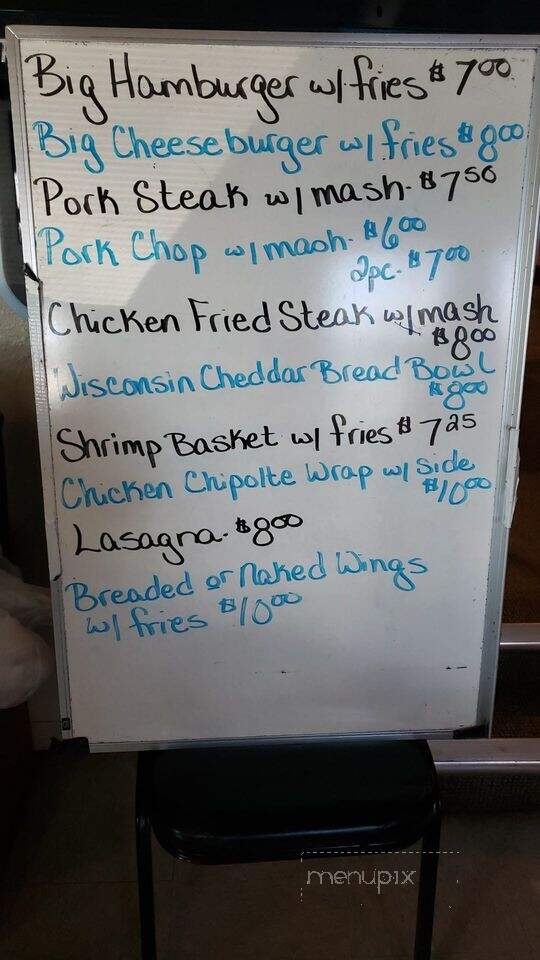 Big Hamburger w/ fries $7.00
Big Cheeseburger w/ fries $8.00
Pork Steak w/ mash- $7.50
Pork Chop w/ mash- $6.00
2pc- $7.00
Chicken Fried Steak w/ mash
$8.00
Wisconsin Cheddar Bread Bowl
$8.00
Shrimp Basket w/ fries $7.25
Chicken Chipolte Wrap w/ side
$10.00
Lasagna- $8.00
Breaded or Naked Wings
w/ fries $10.00
menupix